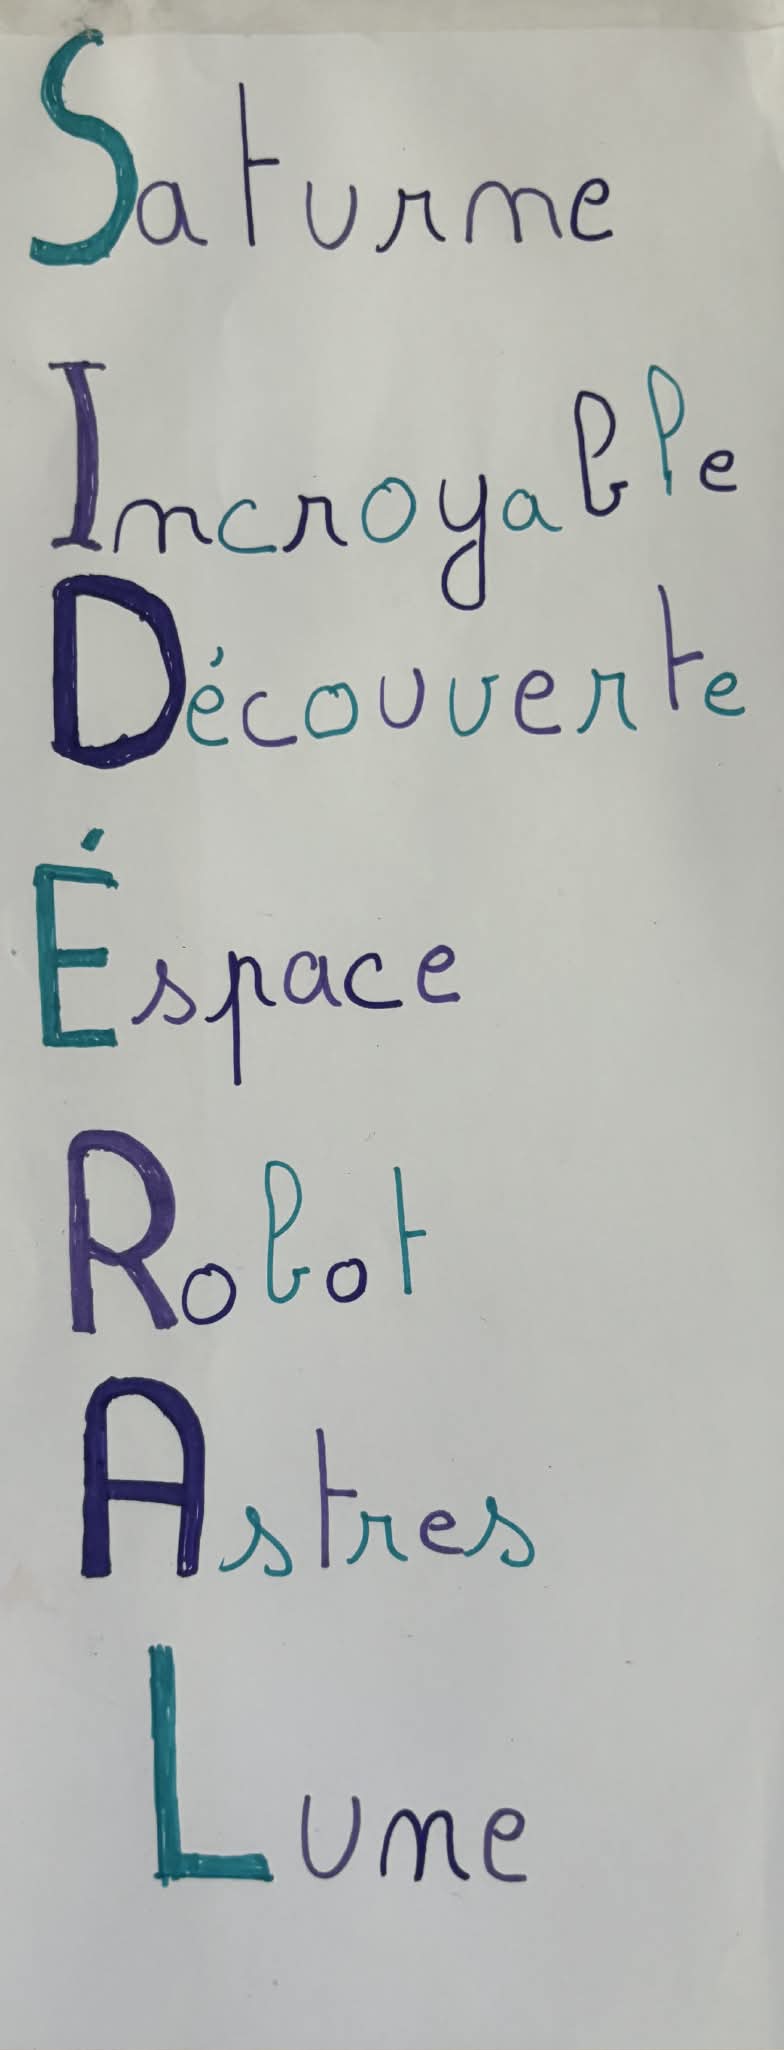 Saturne
Incroyable
Découverte
Éspace
Robot
Astres
Lune